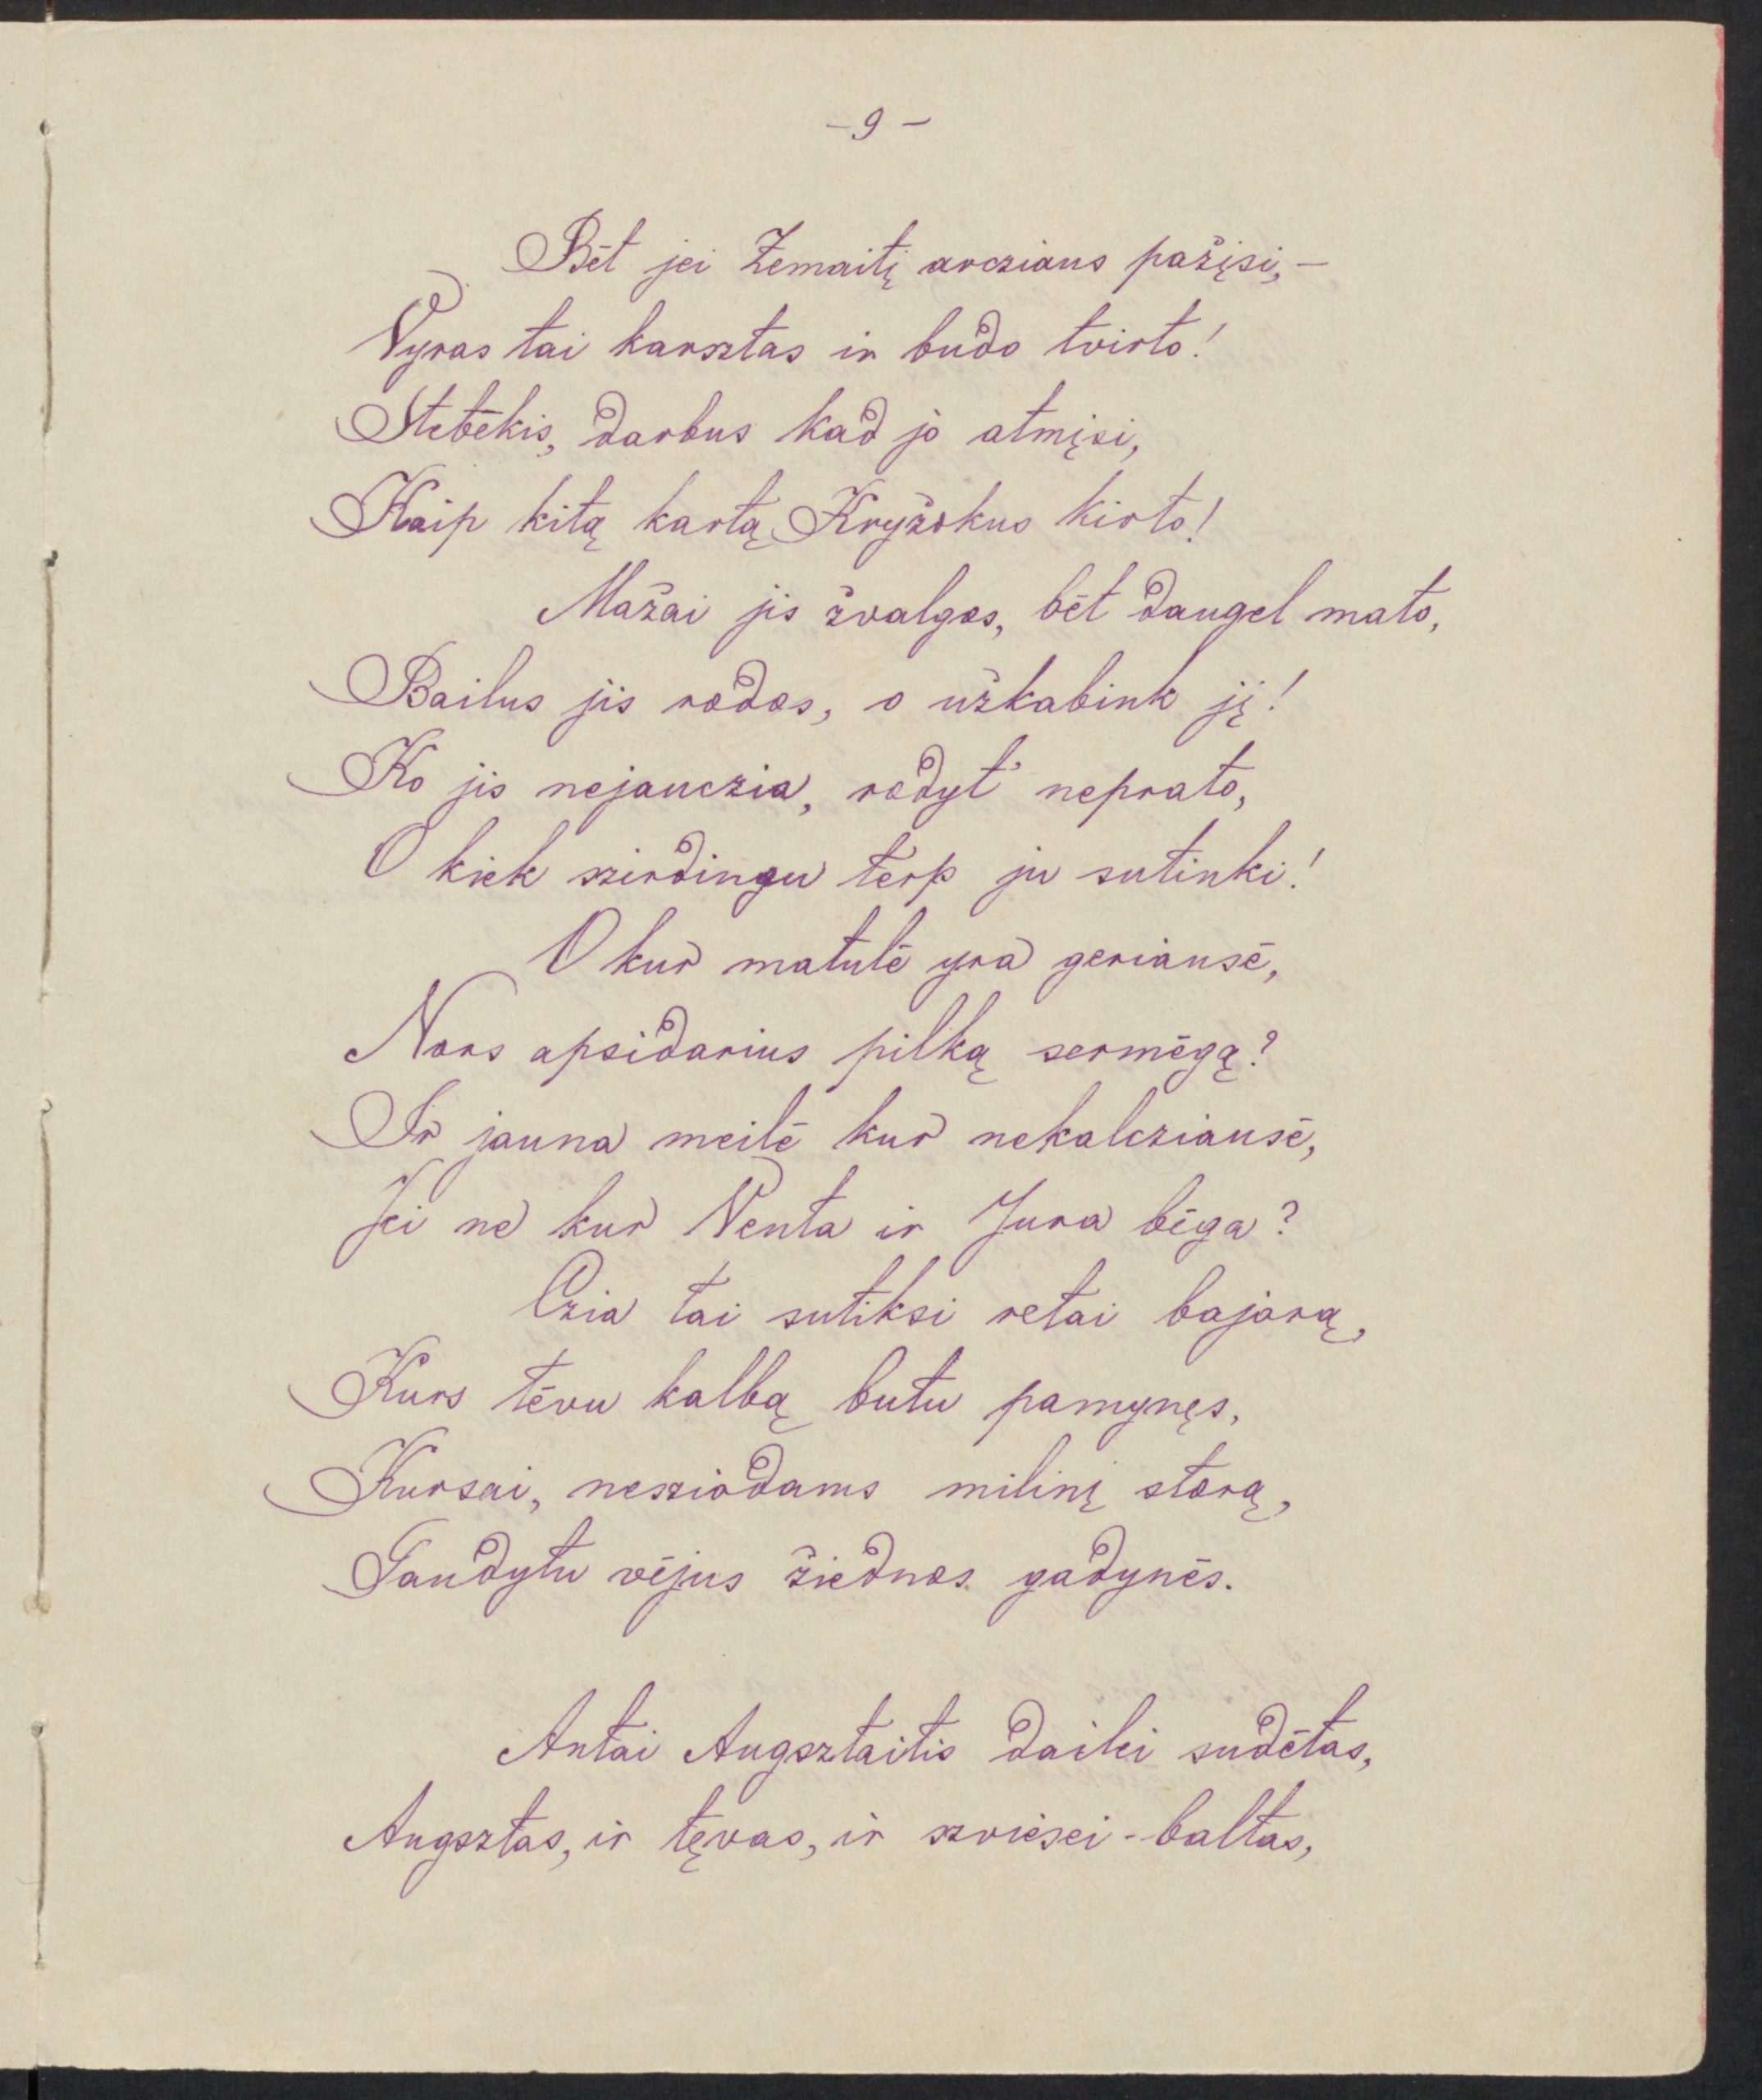 – 9 –
Bėt jei Žemaitį arcziaus pažįsi, –
Vyras tai karsztas ir budo tvirto!
Stebėkis, darbus kad jo atmįsi,
Kaip kitą kartą Kryžokus kirto!
Mažai jis žvalgos, bėt daugel mato,
Bailus jis rodos, o užkabink jį!
Ko jis nejauczia, rodyt' neprato,
O kiek szirdingu terp ju sutinki!
O kur matulė yra geriausė,
Nors apsidarius pilką sermėgą?
Ir jauna meilė kur nekalcziausė,
Jei ne kur Venta ir Jura bėga?
Czia tai sutiksi retai bajorą,
Kurs tėvu kalbą butu pamynęs,
Kursai, nesziodams milinį storą,
Gaudytu vėjus žiednos gadynės.
Antai Augsztaitis dailei sudėtas,
Augsztas, ir tęvas, ir szviesei-baltas,